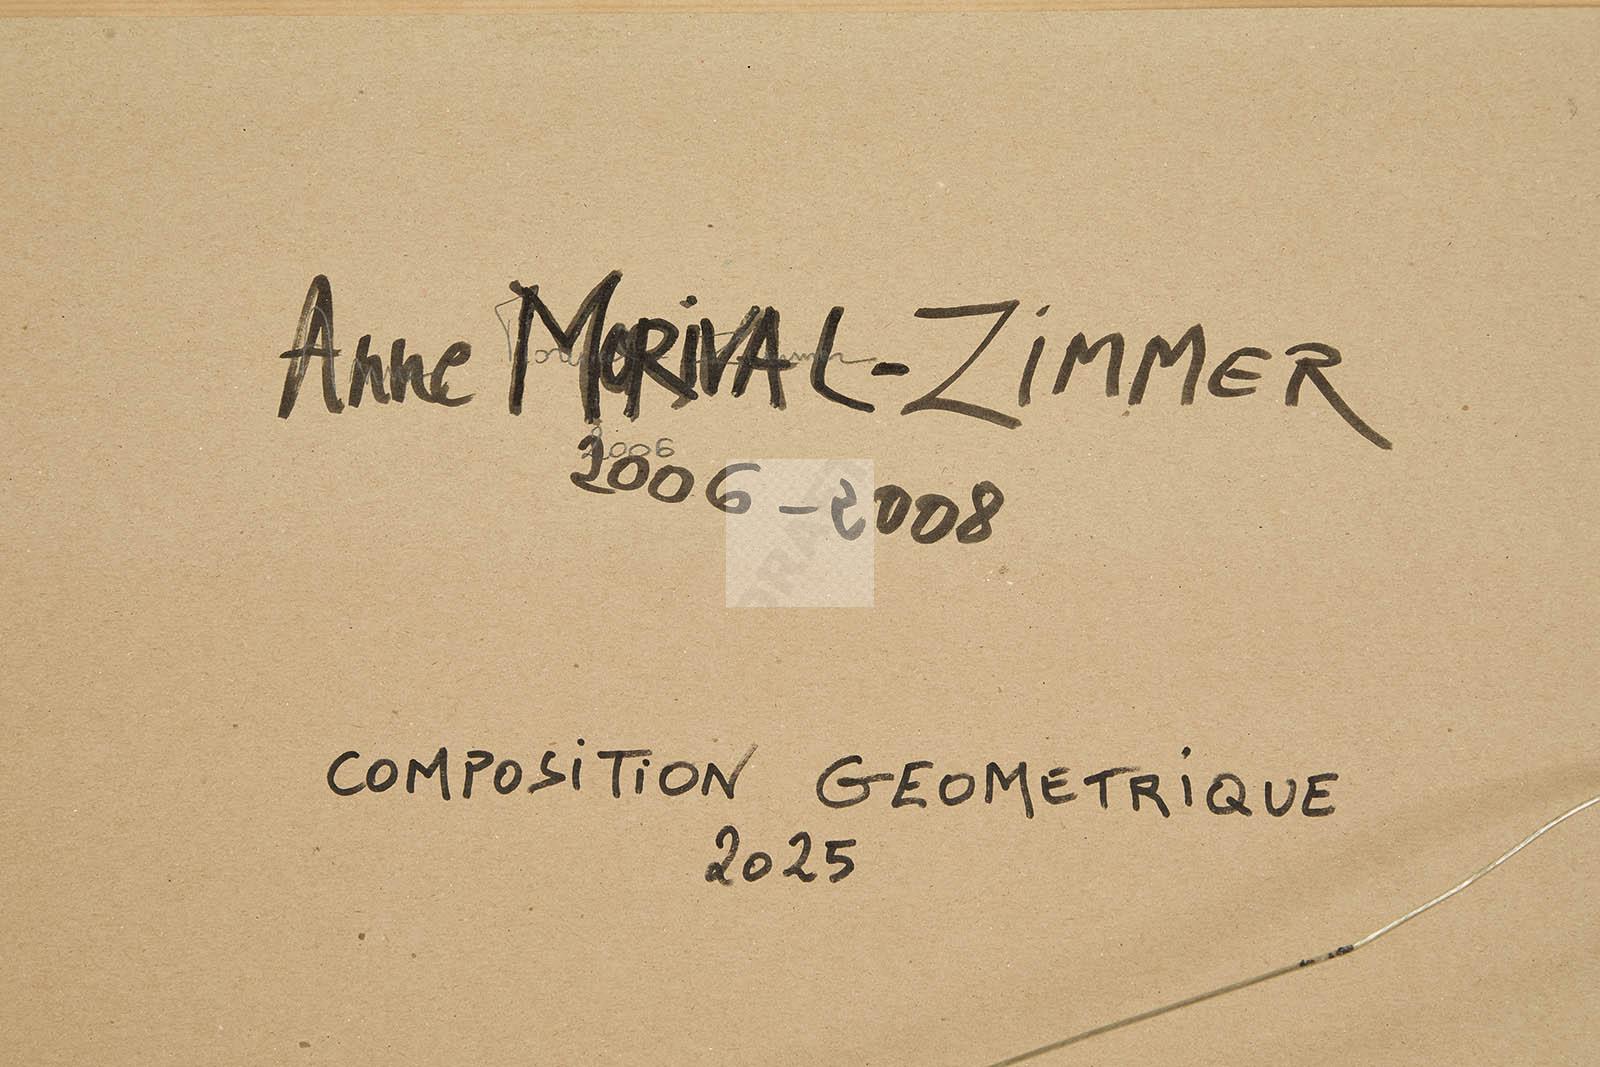 Anne MORiVAL-ZiMMER
2006
2006-2008
COMPOSiTiON GEOMETRiQUE
2025